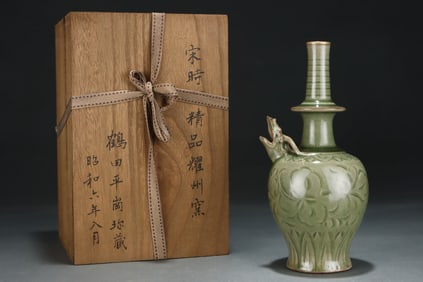 宋時 精品耀州窯
鶴田平崗珍藏
昭和六年八月